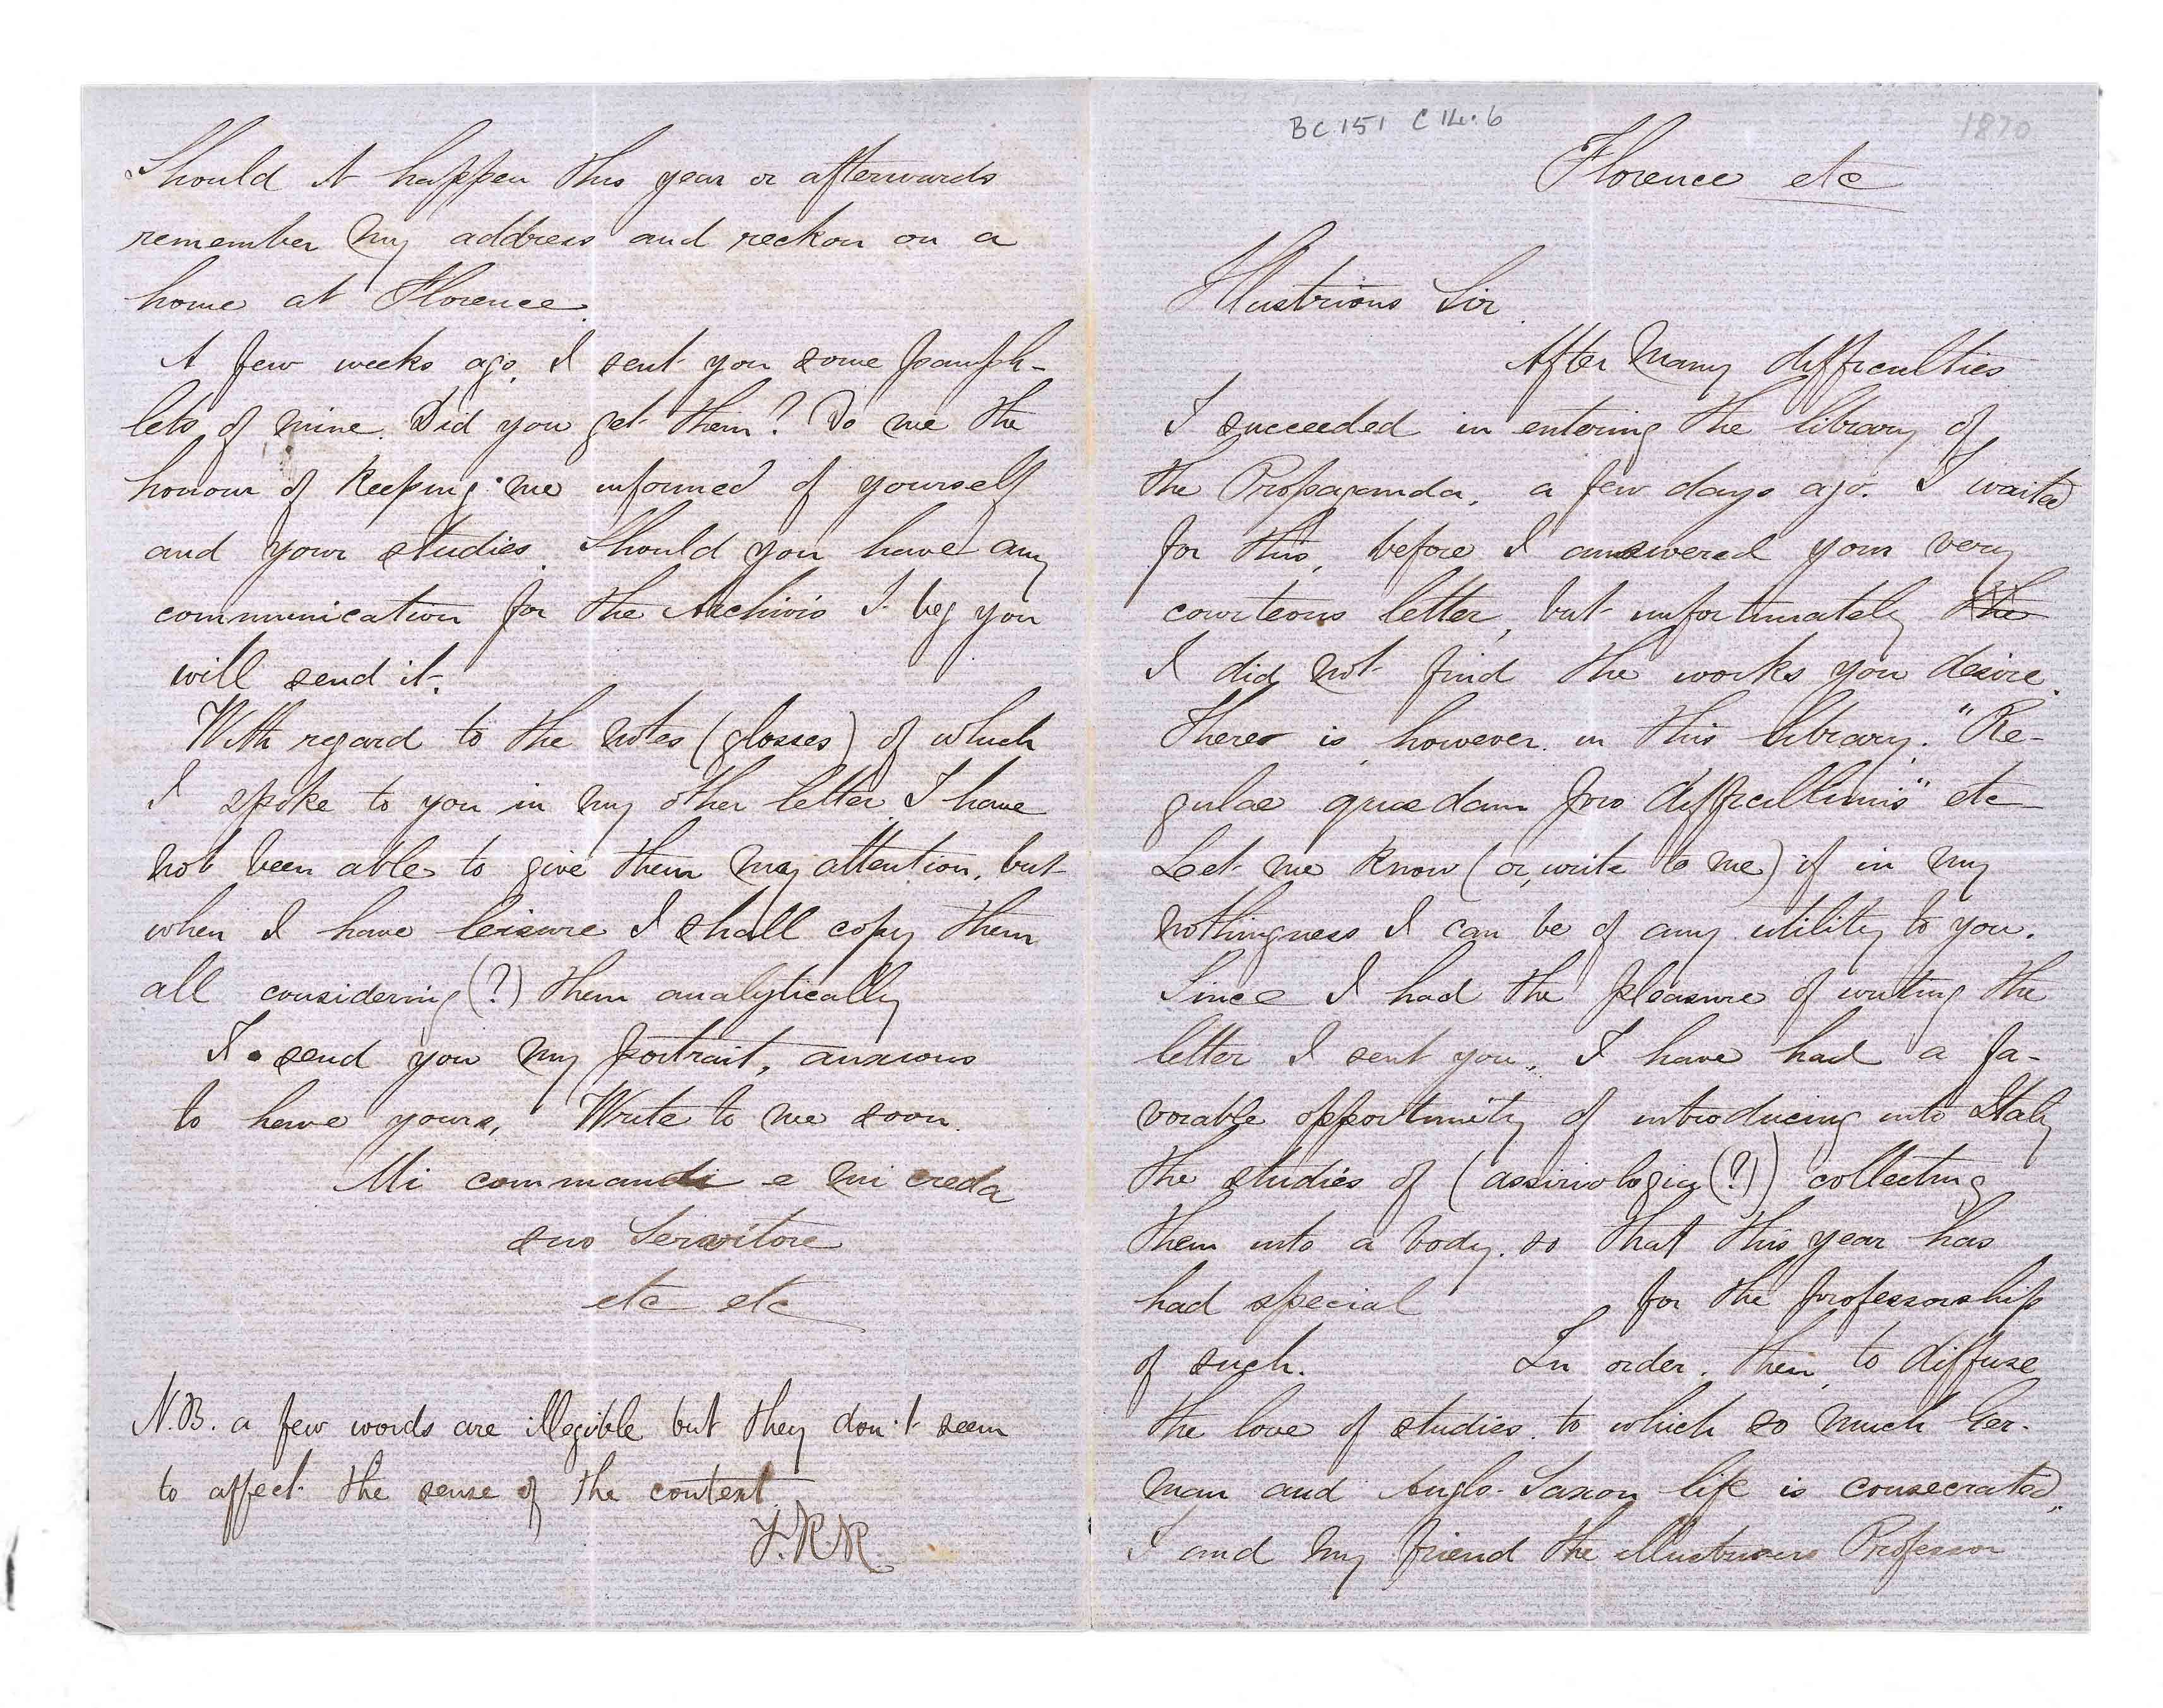 Should it happen this year or afterwards
remember my address and reckon on a
home at Florence.
A few weeks ago, I sent you some pamph-
lets of mine. Did you get them? Do me the
honour of keeping me informed of yourself
and your studies. Should you have any
communication for the Archivio I beg you
will send it.
With regard to the notes (glosses) of which
I spoke to you in my other letter I have
not been able to give them my attention, but
when I have leisure I shall copy them
all considering (?) them analytically
I send you my portrait, anxious
to have yours, Write to me soon.
Mi commandi e mi creda
suo Servitore
etc etc
N.B. a few words are illegible but they don't seem
to affect the sense of the context.
Y.R.R.
BC 151 C 14.6
1870
Florence etc
Illustrious Sir
After many difficulties
I succeeded in entering the library of
the Propaganda, a few days ago. I waited
for this, before I answered your very
courteous letter, but unfortunately the
I did not find the works you desire.
There is, however, in this library: "Re-
gulae quaedam pro difficillimis" etc
Let me know (or, write to me) if in my
nothingness I can be of any utility to you.
Since I had the pleasure of writing the
letter I sent you, I have had a fa-
vorable opportunity of introducing into Italy
the studies of (assiriologia (?)) collecting
them into a body, so that this year has
had special for the professorship
of such. In order, then, to diffuse
the love of studies, to which so much Ger-
man and Anglo-Saxon life is consecrated,
I and my friend the illustrious Professor